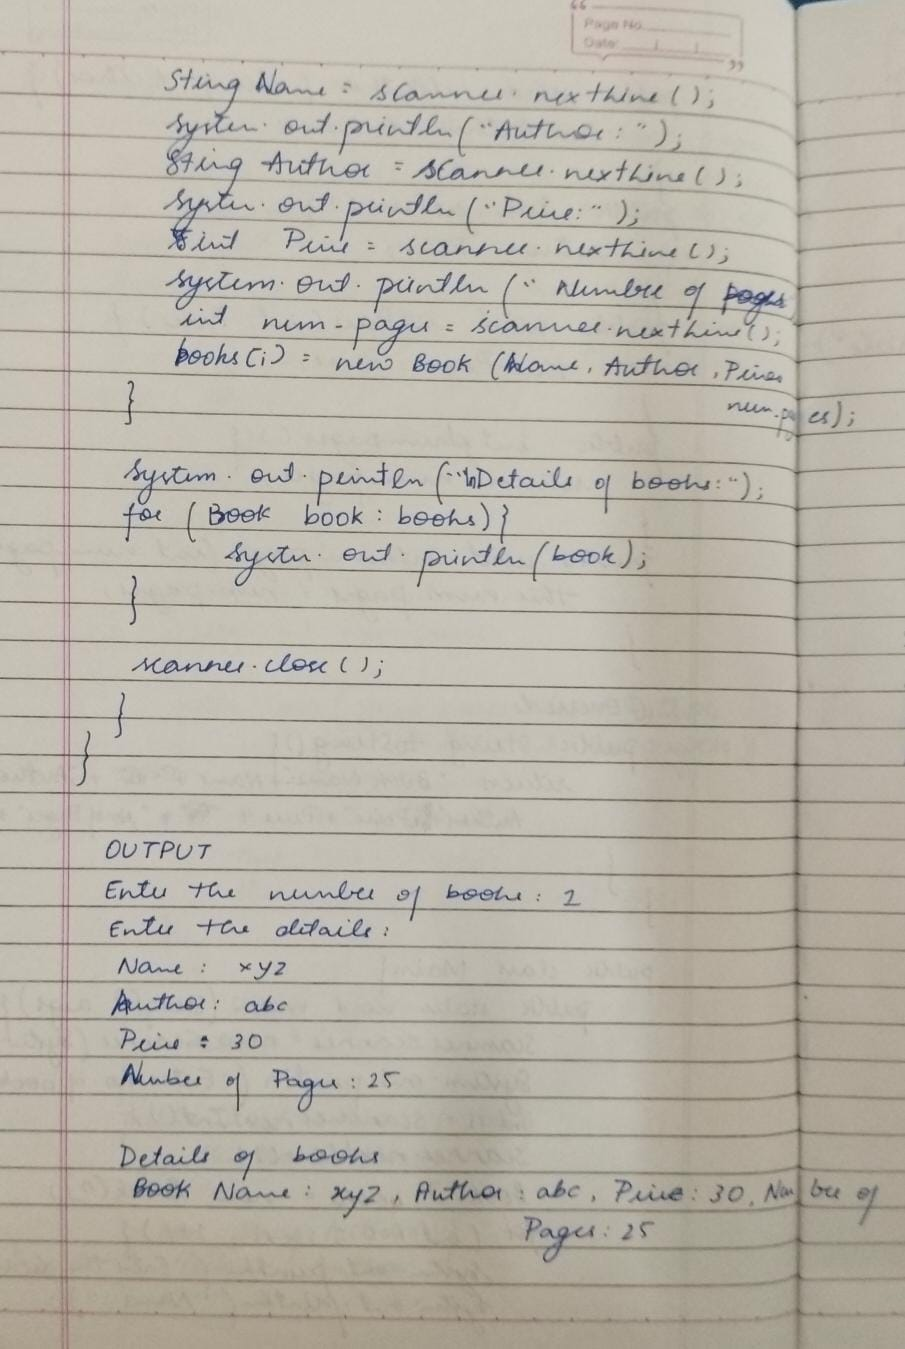 Page No.
Date:
Sting Name = scanner. nextline();
System. out.println("Author:");
Sting Author = scanner.nextline();
System. out.println("Price:");
int Price = scanner. nextline();
system. out. println (" Number of pages
int num-pages = scanner.nextline();
books(i) = new Book (Name, Author, Price,
num-pages);
}
System. out. println("\nDetails of books:");
for (Book book : books){
System. out. println(book);
}
scanner.close();
}
}
OUTPUT
Enter the number of books: 1
Enter the details:
Name: xyz
Author: abc
Price: 30
Number of Pages: 25
Details of books
Book Name: xyz, Author: abc, Price: 30, Number of
Pages: 25